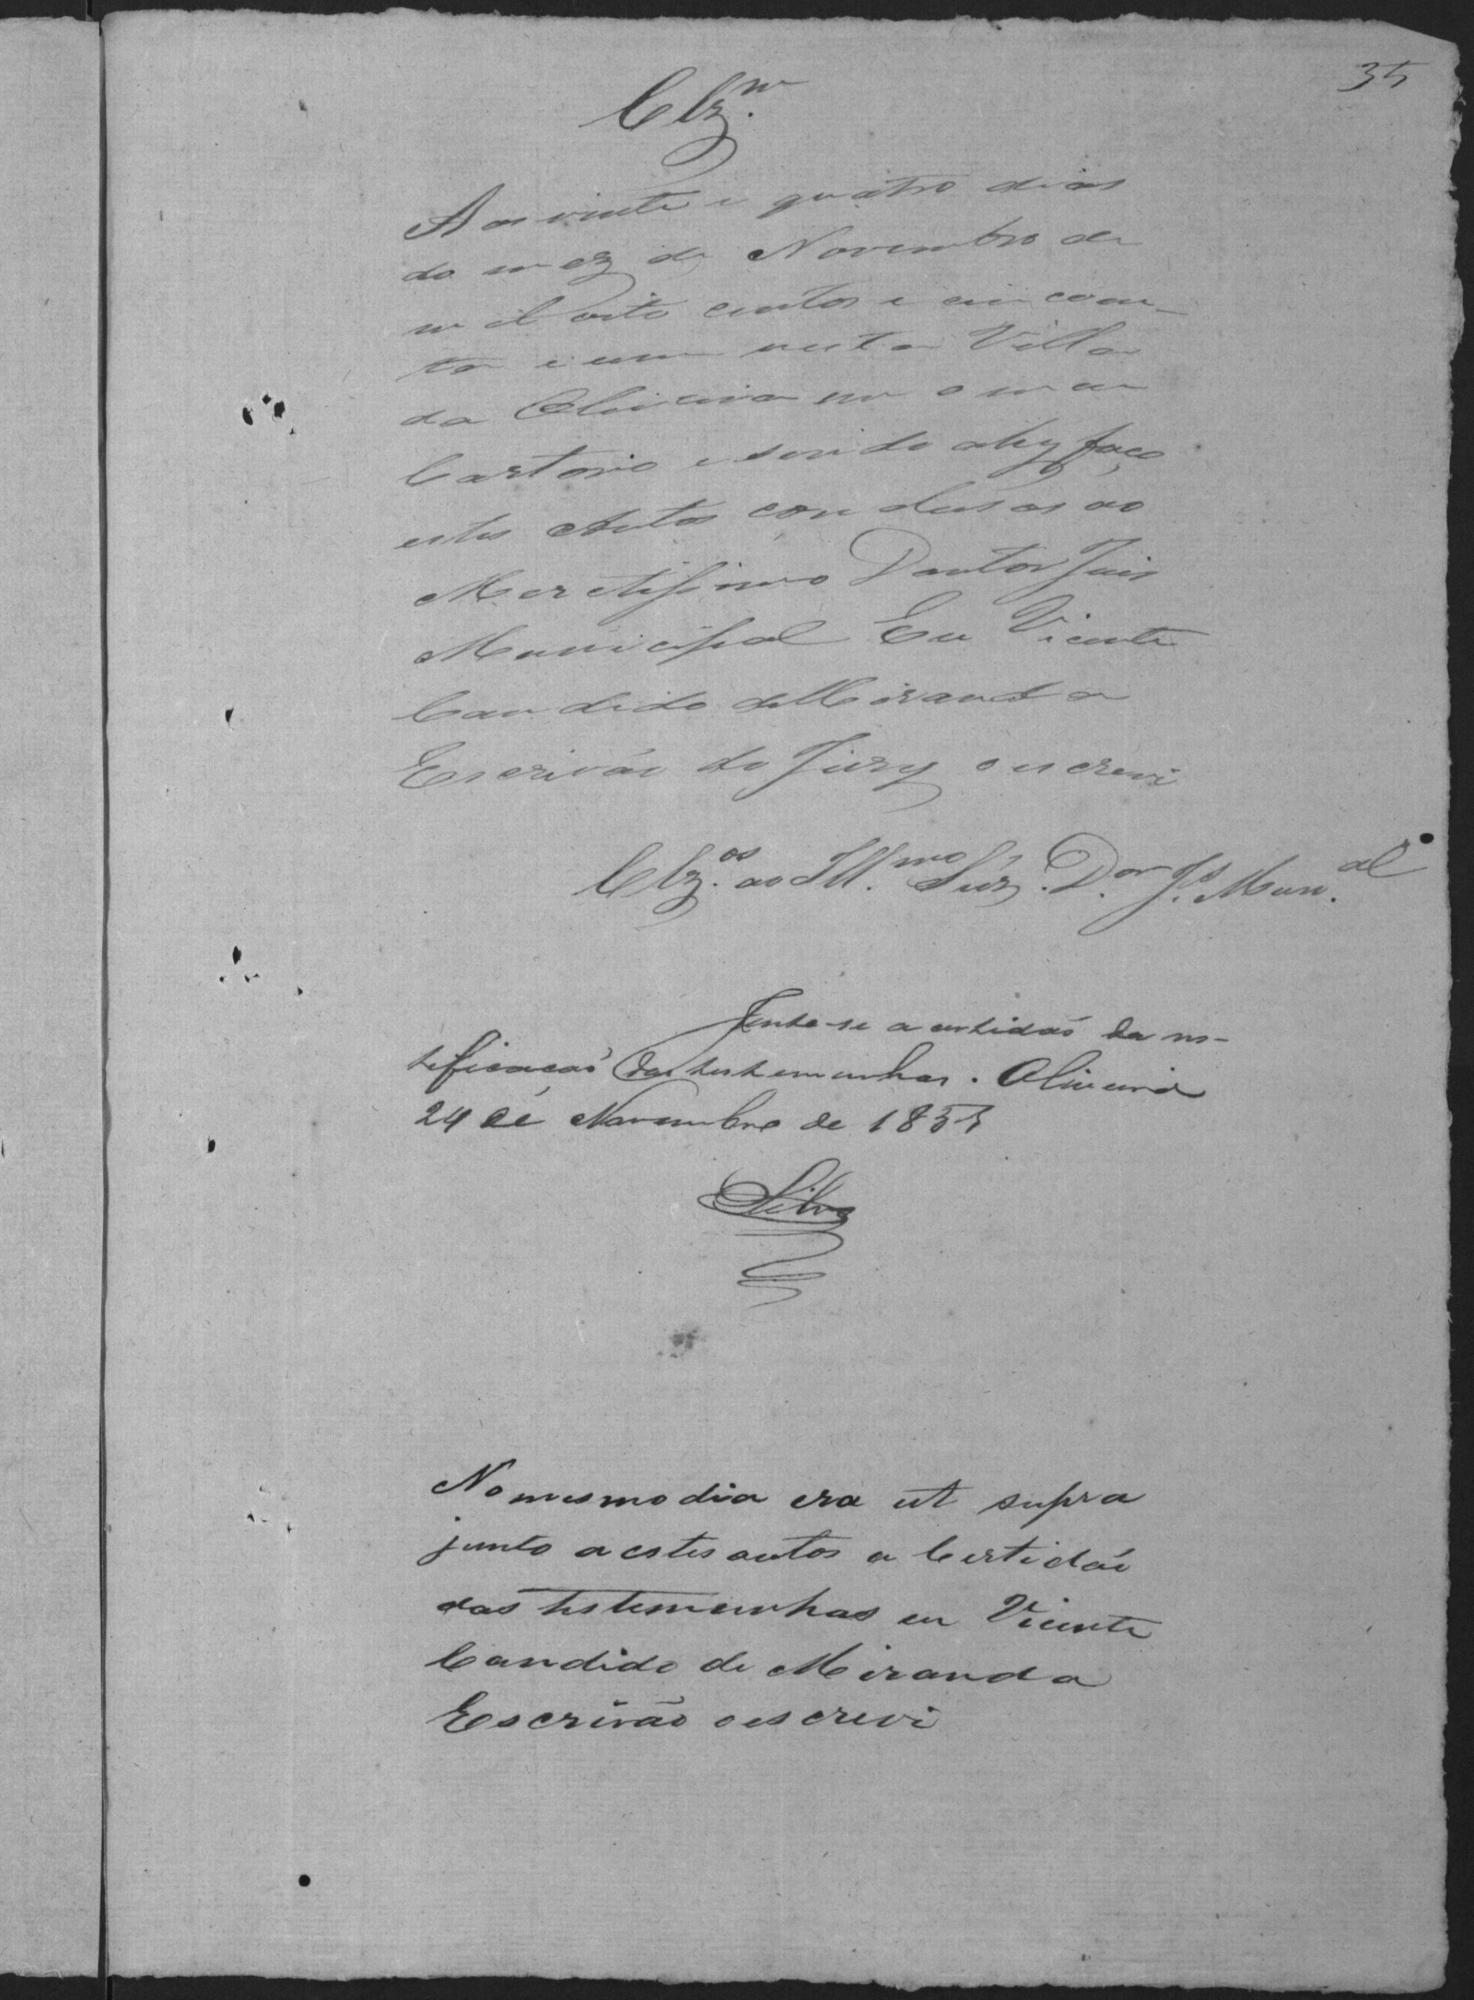 35
Clz.m
Aos vinte e quatro dias
do mez de Novembro de
mil oito centos e cincoen-
ta e um nesta Villa
da Oliveira em o meu
Cartorio e sendo ahy faço
estes Autos concluzos ao
Meretissimo Doutor Juis
Municipal Eu Vicente
Candido de Miranda
Escrivão do Jury o escrevi
Clz.os ao Ill.mo Snr. D.or J.s Mun.al
Junte-se a certidaõ da no-
tificaçaõ das testemunhas. Oliveira
24 de Novembro de 1851
Silva
No mesmo dia era ut supra
junto a estes autos a Certidão
das testemunhas eu Vicente
Candido de Miranda
Escrivão o escrevi